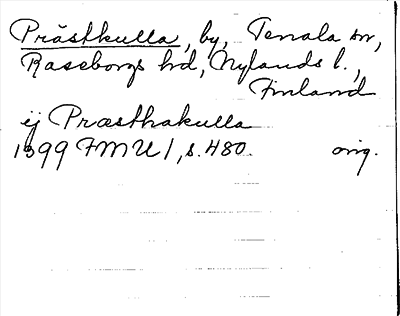 Prästkulla, by, Tenala sn,
Raseborgs hd, Nylands l.,
Finland
ij Præsthakulla
1399 FMU 1, s. 480. orig.